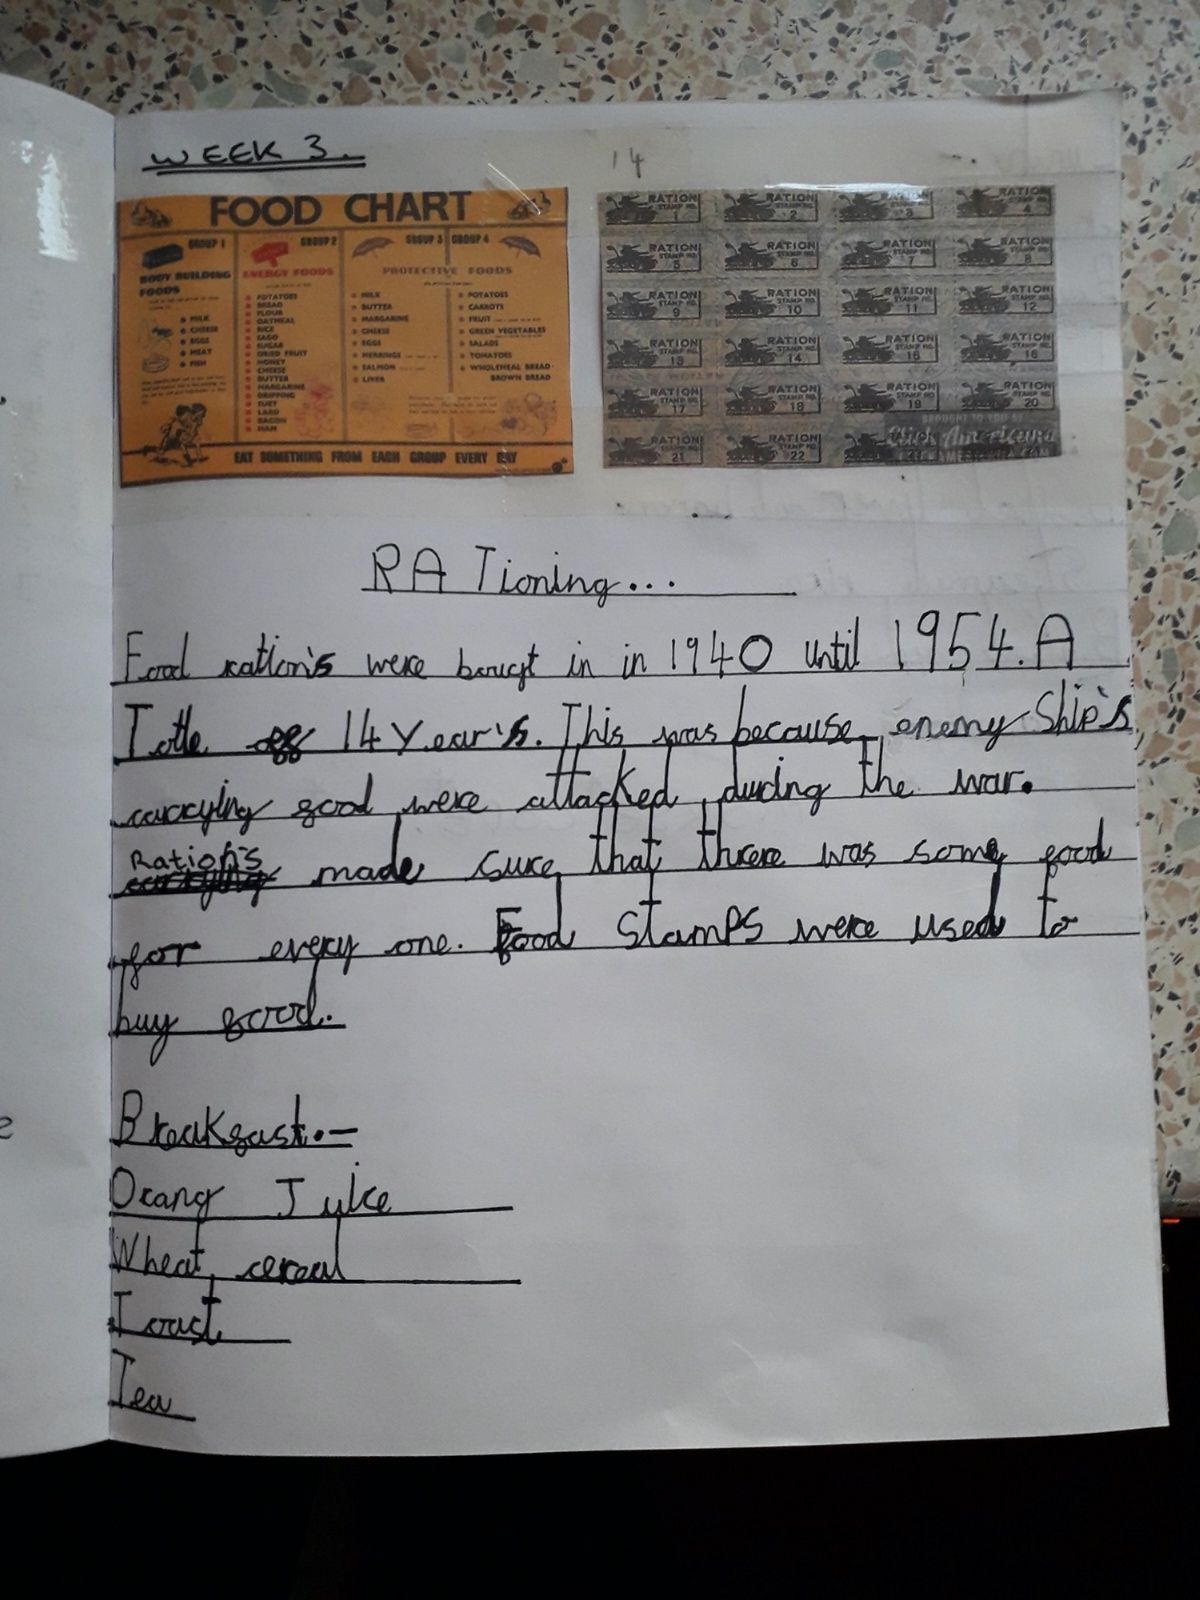 WEEK 3.
14
FOOD CHART
GROUP 1
BODY BUILDING
FOODS
MILK
CHEESE
EGGS
MEAT
FISH
GROUP 2
ENERGY FOODS
POTATOES
BREAD
FLOUR
OATMEAL
RICE
SAGO
SUGAR
DRIED FRUIT
HONEY
CHEESE
BUTTER
MARGARINE
DRIPPING
SUET
LARD
BACON
HAM
GROUP 3 GROUP 4
PROTECTIVE FOODS
MILK
BUTTER
MARGARINE
CHEESE
EGGS
HERRINGS
SALMON
LIVER
POTATOES
CARROTS
FRUIT
GREEN VEGETABLES
SALADS
TOMATOES
WHOLEMEAL BREAD
BROWN BREAD
EAT SOMETHING FROM EACH GROUP EVERY DAY
RATION STAMP NO. 1 RATION STAMP NO. 2 RATION STAMP NO. 3 RATION STAMP NO. 4
RATION STAMP NO. 5 RATION STAMP NO. 6 RATION STAMP NO. RATION STAMP NO. 8
RATION STAMP NO. 9 RATION STAMP NO. 10 RATION STAMP NO. 11 RATION STAMP NO. 12
RATION STAMP NO. 13 RATION STAMP NO. 14 RATION STAMP NO. 15 RATION STAMP NO. 16
RATION STAMP NO. 17 RATION STAMP NO. 18 RATION STAMP NO. 19 RATION STAMP NO. 20
RATION STAMP NO. 21 RATION STAMP NO. 22
BROUGHT TO YOU BY
Click Americana
RATioning...
Food ration's were bougt in in 1940 until 1954. A
Totle of 14 Year's. This was because enemy Ship's
carrying food were attacked during the war.
Ration's made sure that threre was some food
for every one. Food stamps were used to
buy food.
Breakfast.-
Orang Juice
Wheat cereal
Toast
Tea